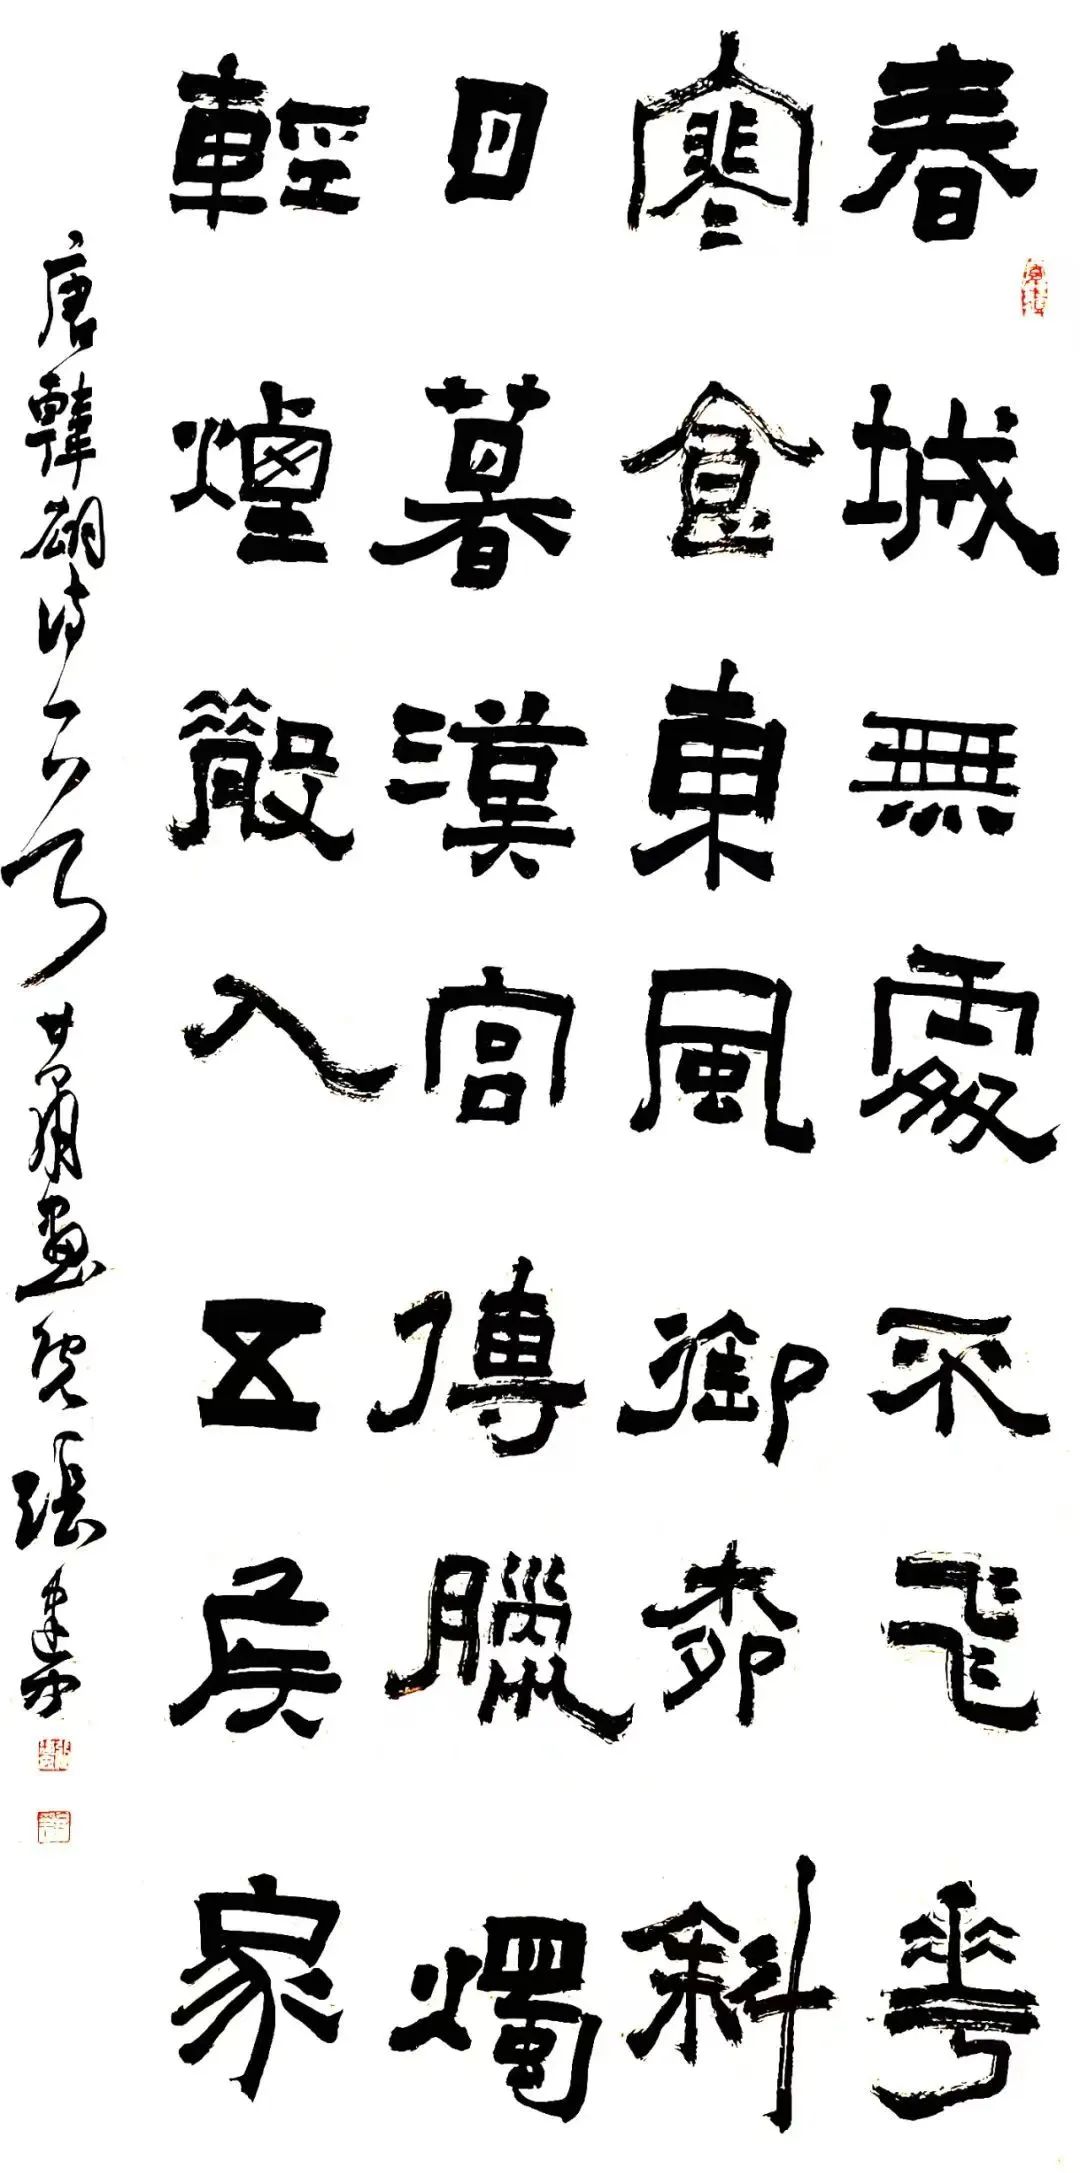 春城無處不飛華
寒食東風御柳斜
日暮漢宮傳臘燭
輕煙散入五侯家
唐韓翃詩一首甘肅畫院張建